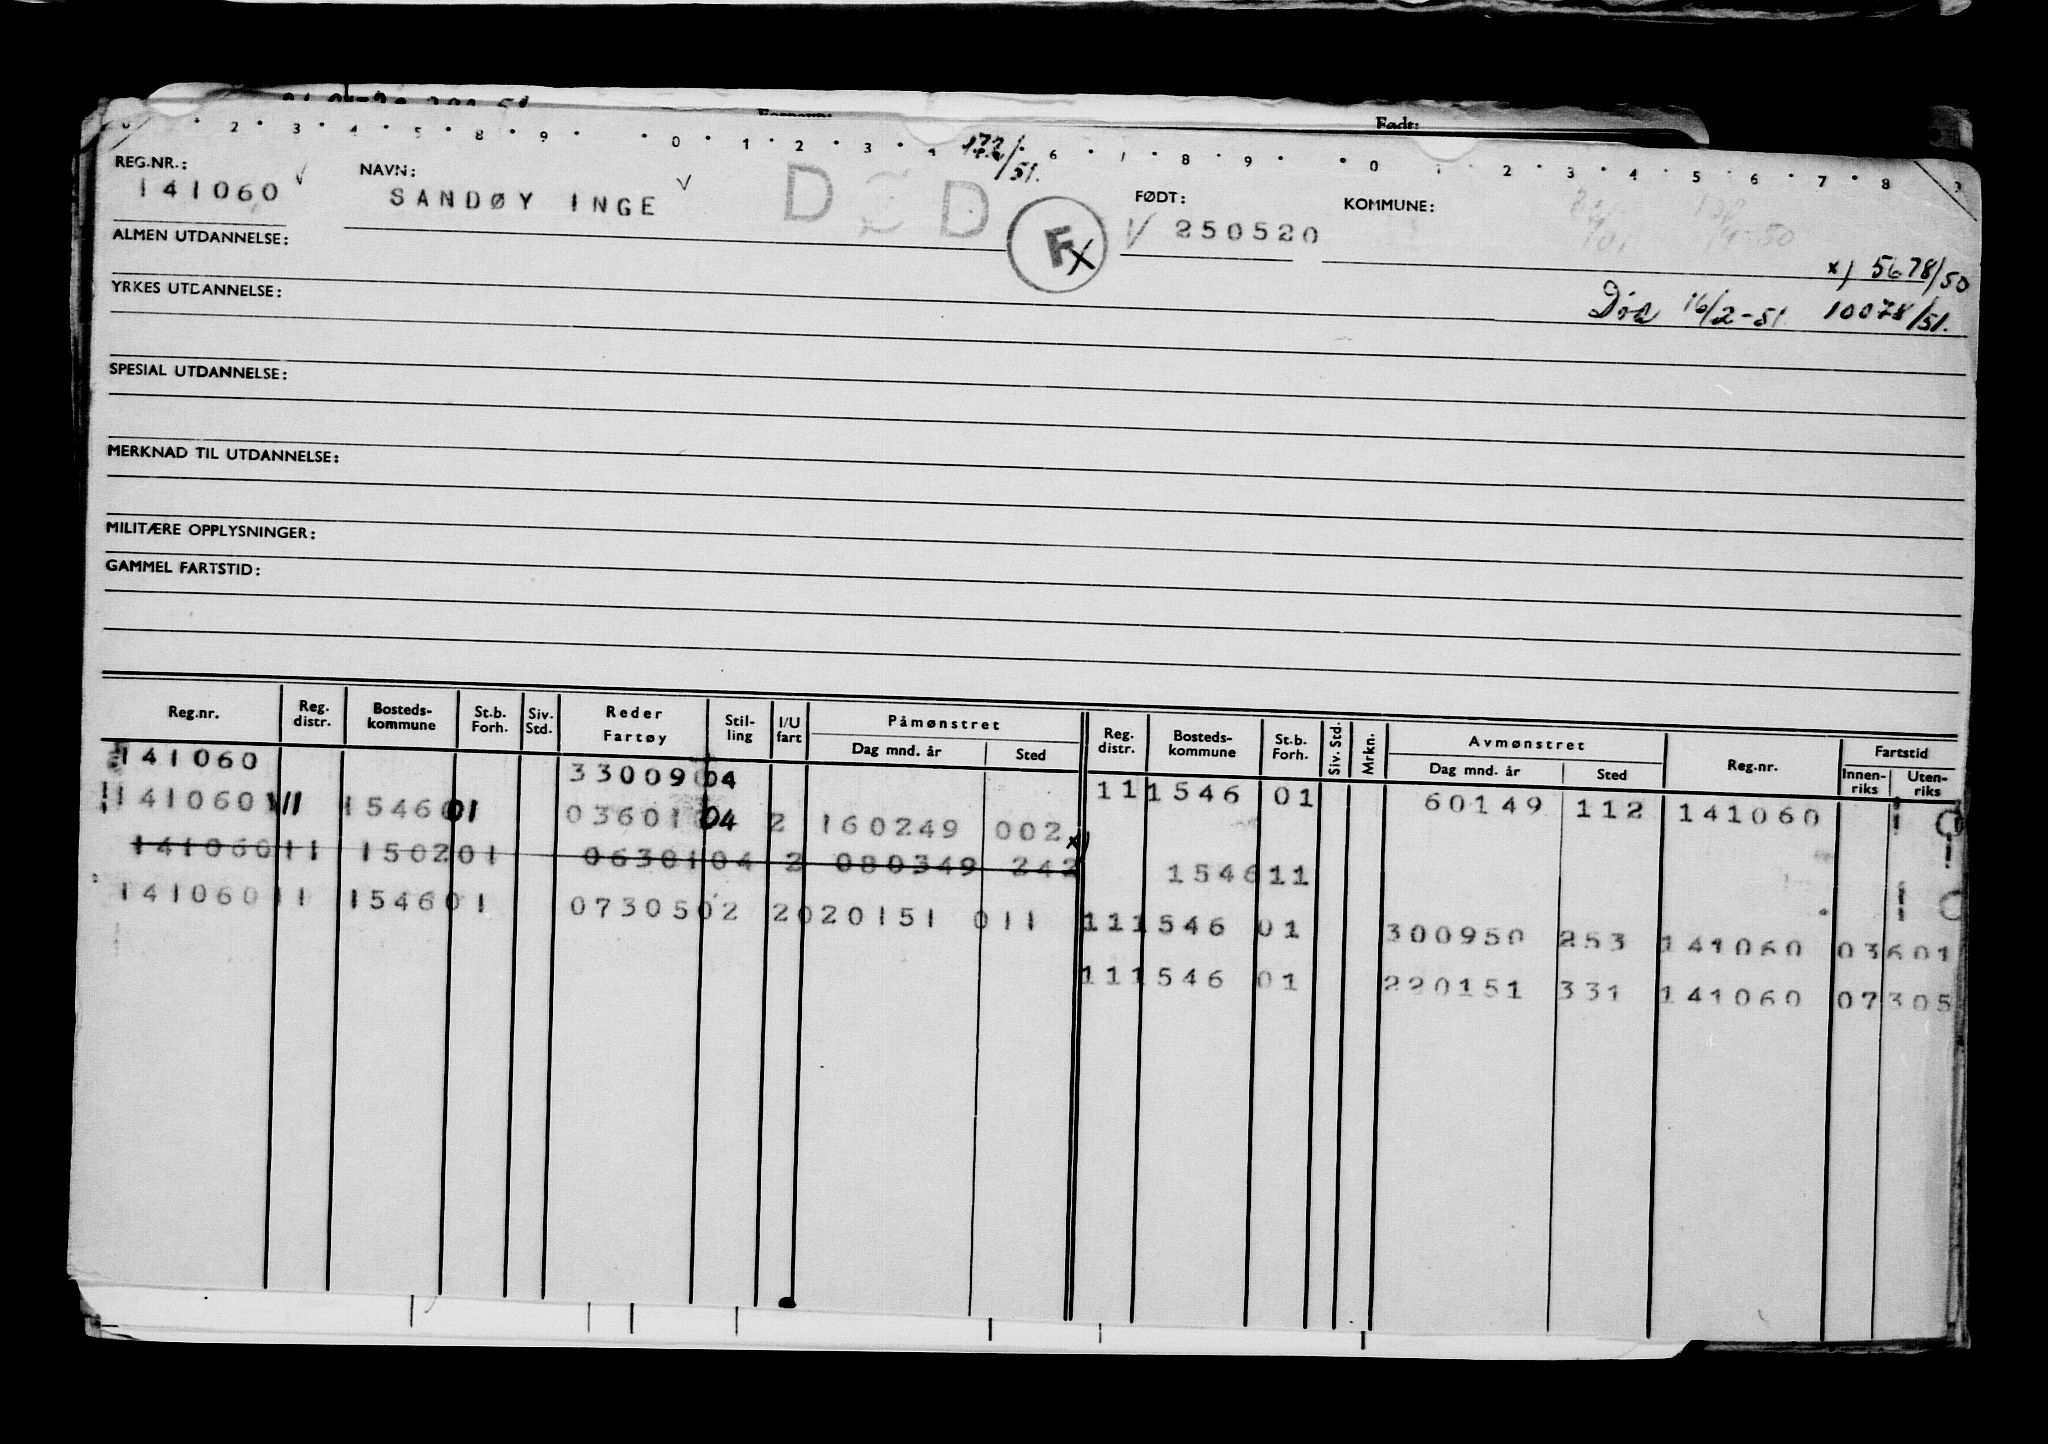 Født:
2 3 4 5 8 9 0 1 2 3 4 6 1 8 9 0 1 2 3 4 5 6 7 8
172/51.
REG.NR.: NAVN: FØDT: KOMMUNE:
141060 SANDØY INGE DØD F x V 250520
ALMEN UTDANNELSE:
x) 5678/50
YRKES UTDANNELSE:
Død 16/2-51 10078/51.
SPESIAL UTDANNELSE:
MERKNAD TIL UTDANNELSE:
MILITÆRE OPPLYSNINGER:
GAMMEL FARTSTID:
Reg.nr. Reg. distr. Bosteds-kommune St.b. Forh. Siv. Std. Reder Fartøy Stil-ling I/U fart Påmønstret Dag mnd. år Sted Reg. distr. Bosteds-kommune St.b. Forh. Siv. Std. Mrkn. Avmønstret Dag mnd. år Sted Reg.nr. Fartstid Innen-riks Uten-riks
141060 33009 04 11 1546 01 60149 112 141060
141060 11 1546 01 03601 04 2 160249 002
141060 11 1502 01 06301 04 2 080349 242 x) 1546 11
141060 11 1546 01 07305 02 2 020151 011 11 1546 01 300950 253 141060 03601
11 1546 01 220151 331 141060 07305